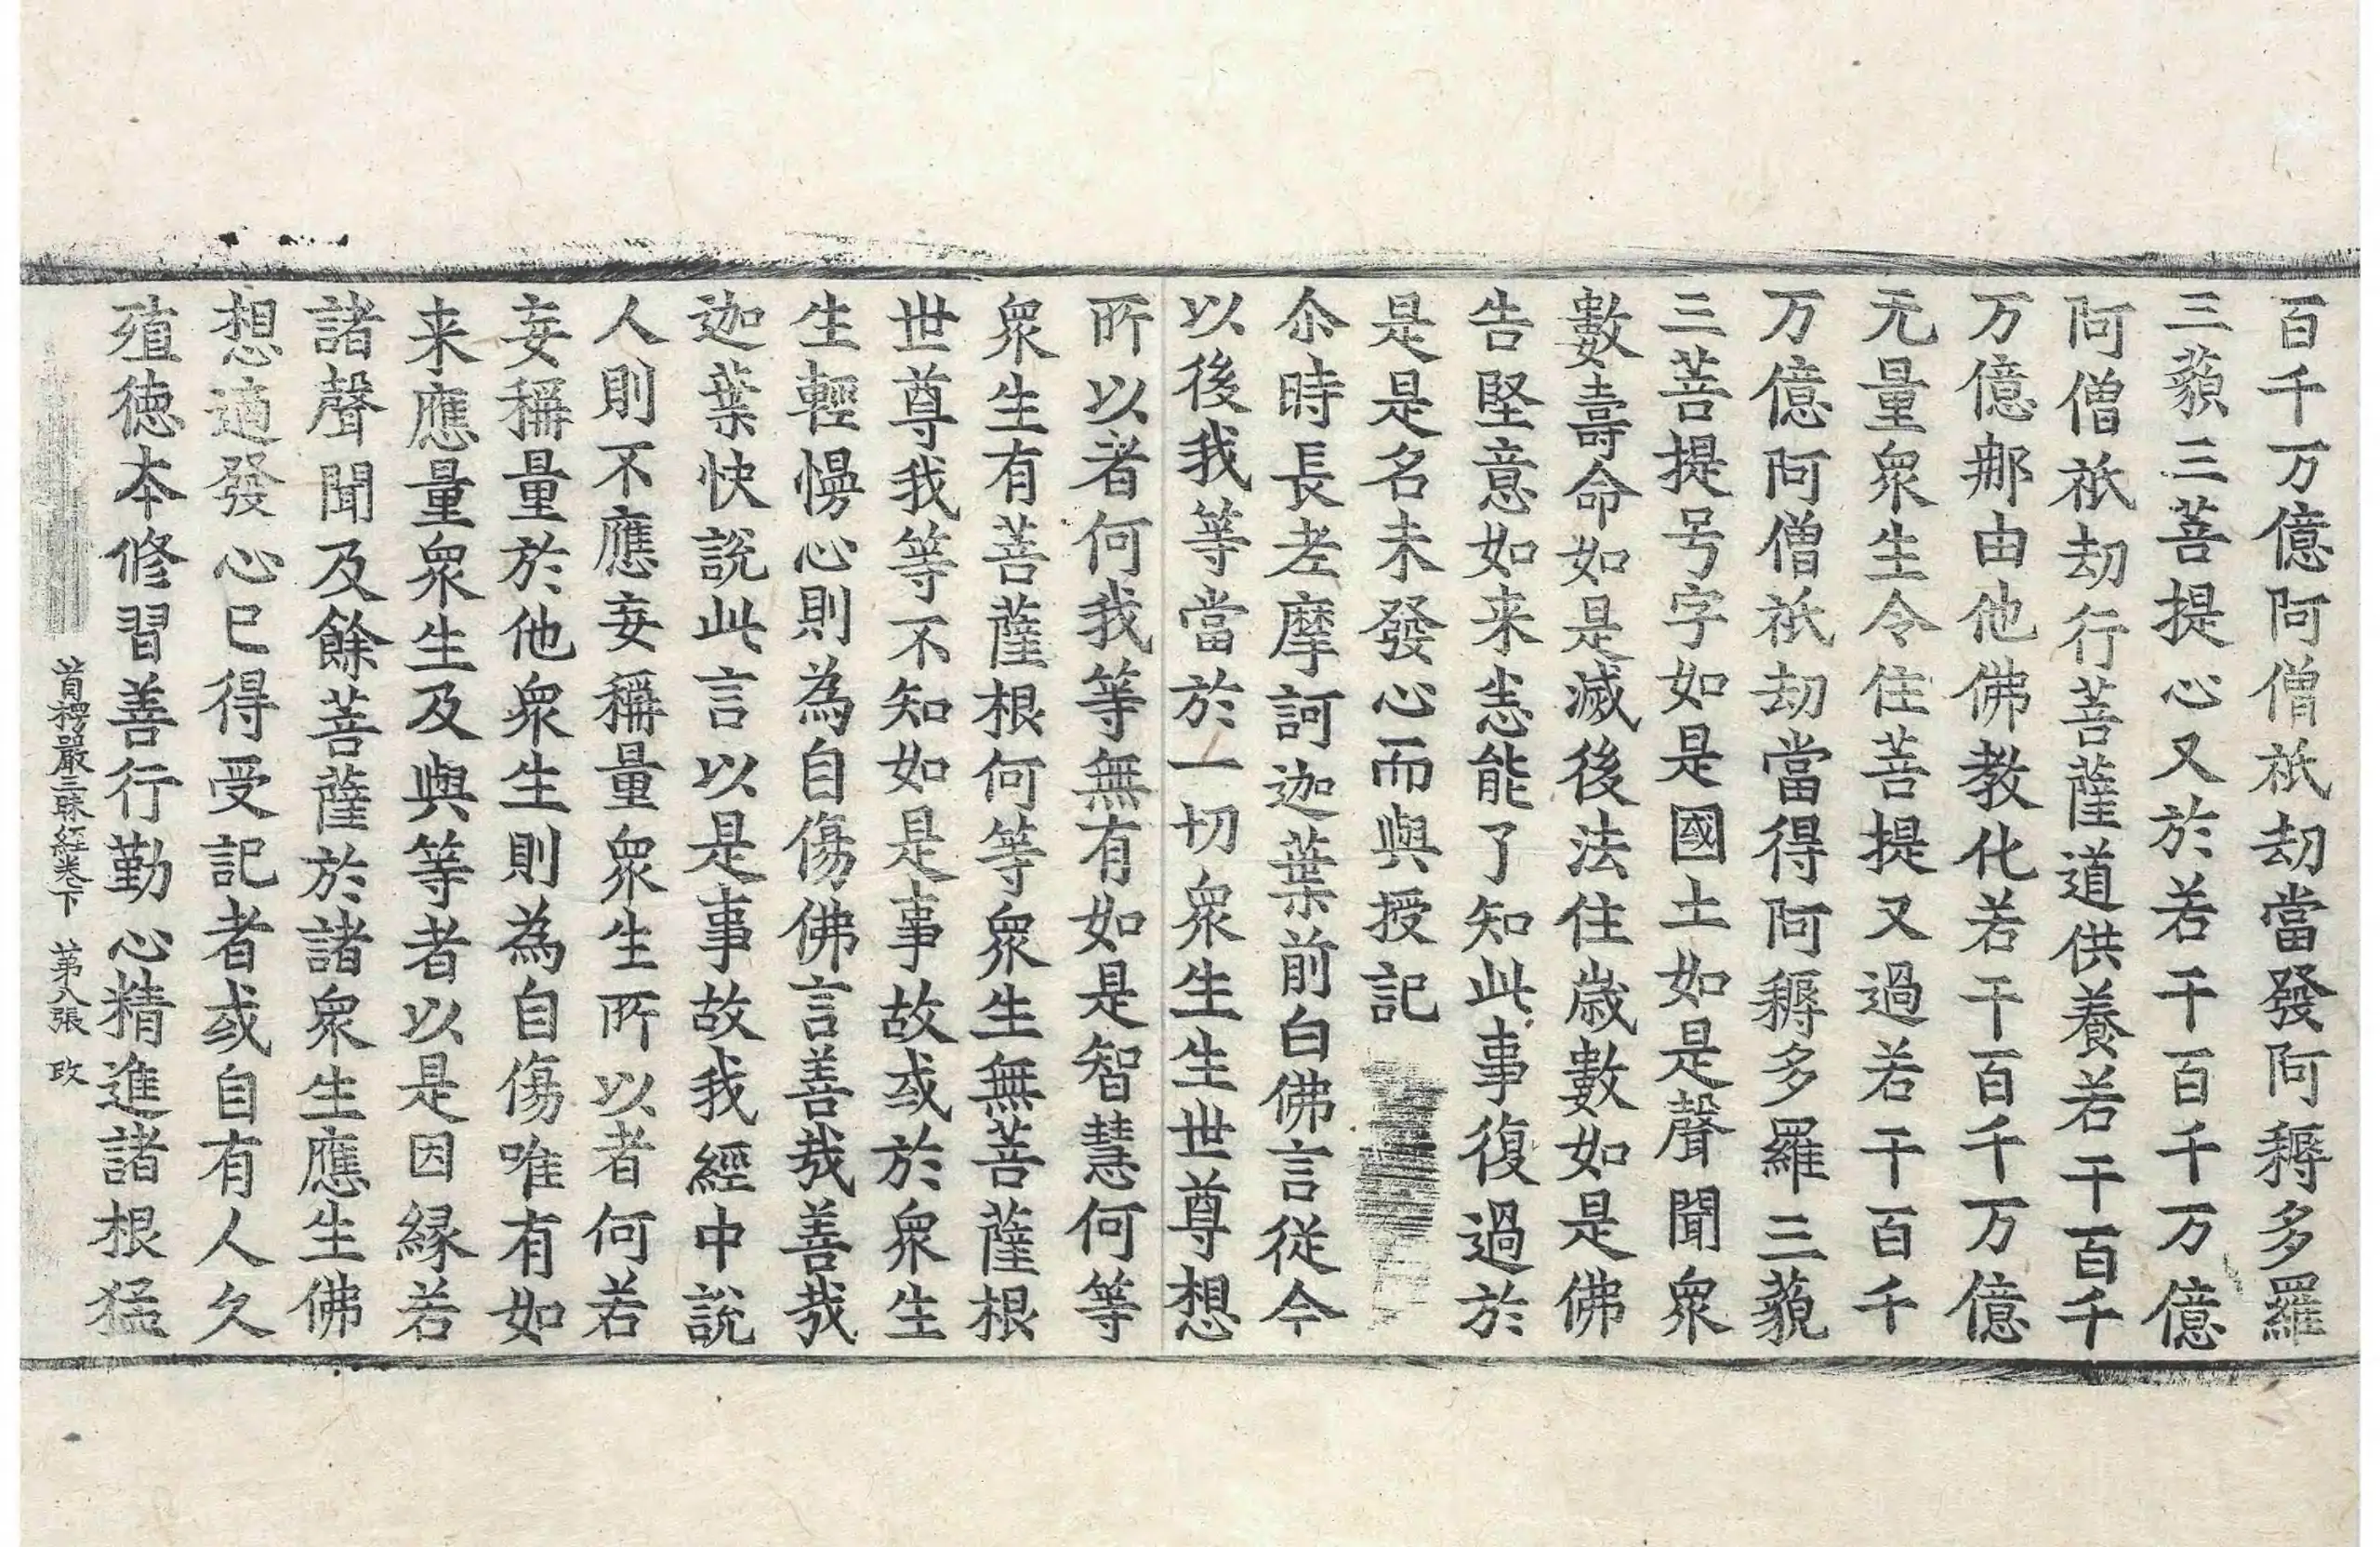 百千万億阿僧祇劫當發阿耨多羅
三藐三菩提心又於若干百千万億
阿僧祇劫行菩薩道供養若干百千
万億那由他佛教化若干百千万億
无量衆生令住菩提又過若干百千
万億阿僧祇劫當得阿耨多羅三藐
三菩提号字如是國土如是聲聞衆
數壽命如是滅後法住歳數如是佛
告堅意如来悉能了知此事復過於
是是名未發心而與授記
尒時長老摩訶迦葉前白佛言從今
以後我等當於一切衆生生世尊想
所以者何我等無有如是智慧何等
衆生有菩薩根何等衆生無菩薩根
世尊我等不知如是事故或於衆生
生輕慢心則為自傷佛言善哉善哉
迦葉快說此言以是事故我經中說
人則不應妄稱量衆生所以者何若
妄稱量於他衆生則為自傷唯有如
来應量衆生及與等者以是因緣若
諸聲聞及餘菩薩於諸衆生應生佛
想適發心已得受記者或自有人久
殖徳本修習善行勤心精進諸根猛
首楞嚴三昧經卷下 苐八張 政